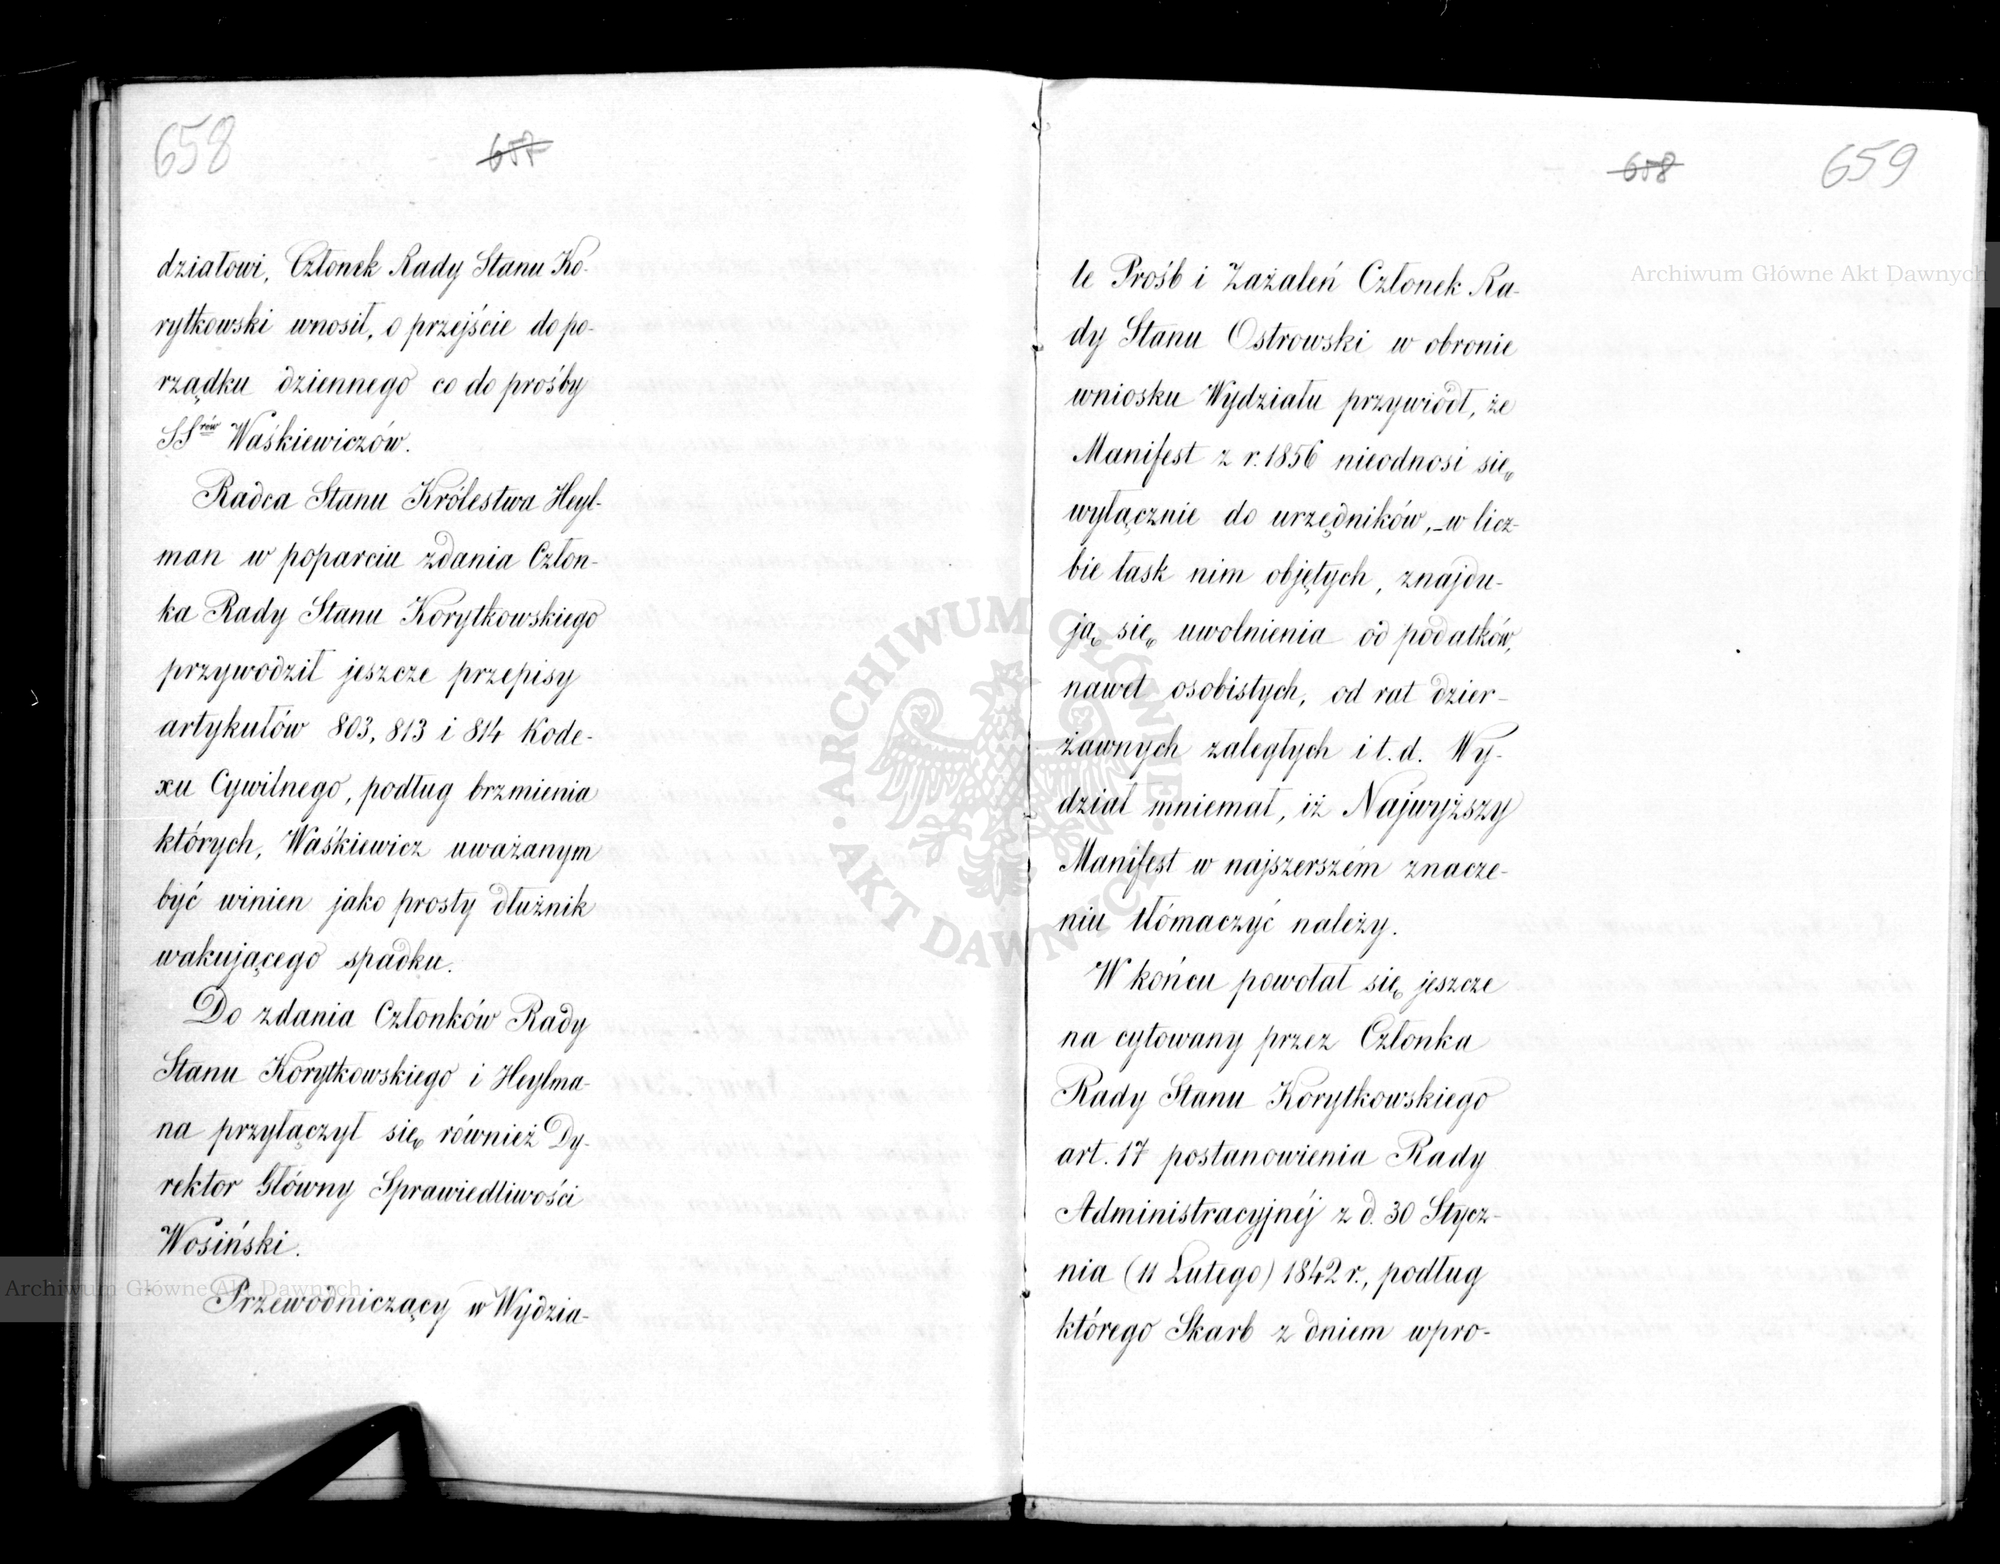 658
657
działowi, Członek Rady Stanu Ko-
rytkowski wnosił, o przejście do po-
rządku dziennego co do prośby
SSrów Waśkiewiczów.
Radca Stanu Królestwa Heyl-
man w poparciu zdania Człon-
ka Rady Stanu Korytkowskiego
przywodził jeszcze przepisy
artykułów 803, 813 i 814 Kode-
xu Cywilnego, podług brzmienia
których, Waśkiewicz uważanym
być winien jako prosty dłużnik
wakującego spadku.
Do zdania Członków Rady
Stanu Korytkowskiego i Heylma-
na przyłączył się również Dy-
rektor Główny Sprawiedliwości
Wosiński.
Przewodniczący w Wydzia-
658
659
le Prośb i Zażaleń Członek Ra-
dy Stanu Ostrowski w obronie
wniosku Wydziału przywiódł, że
Manifest z r. 1856 nieodnosi się
wyłącznie do urzędników, - w licz-
bie łask nim objętych, znajdu-
ją się uwolnienia od podatków,
nawet osobistych, od rat dzier-
żawnych zaległych i t. d. Wy-
dział mniemał, iż Najwyższy
Manifest w najszerszém znacze-
niu tłómaczyć należy.
W końcu powołał się jeszcze
na cytowany przez Członka
Rady Stanu Korytkowskiego
art. 17 postanowienia Rady
Administracyjnéj z d. 30 Stycz-
nia (11 Lutego) 1842 r., podług
którego Skarb z dniem wpro-
Archiwum Główne Akt Dawnych
Archiwum Główne Akt Dawnych
ARCHIWUM GŁÓWNE
AKT DAWNYCH